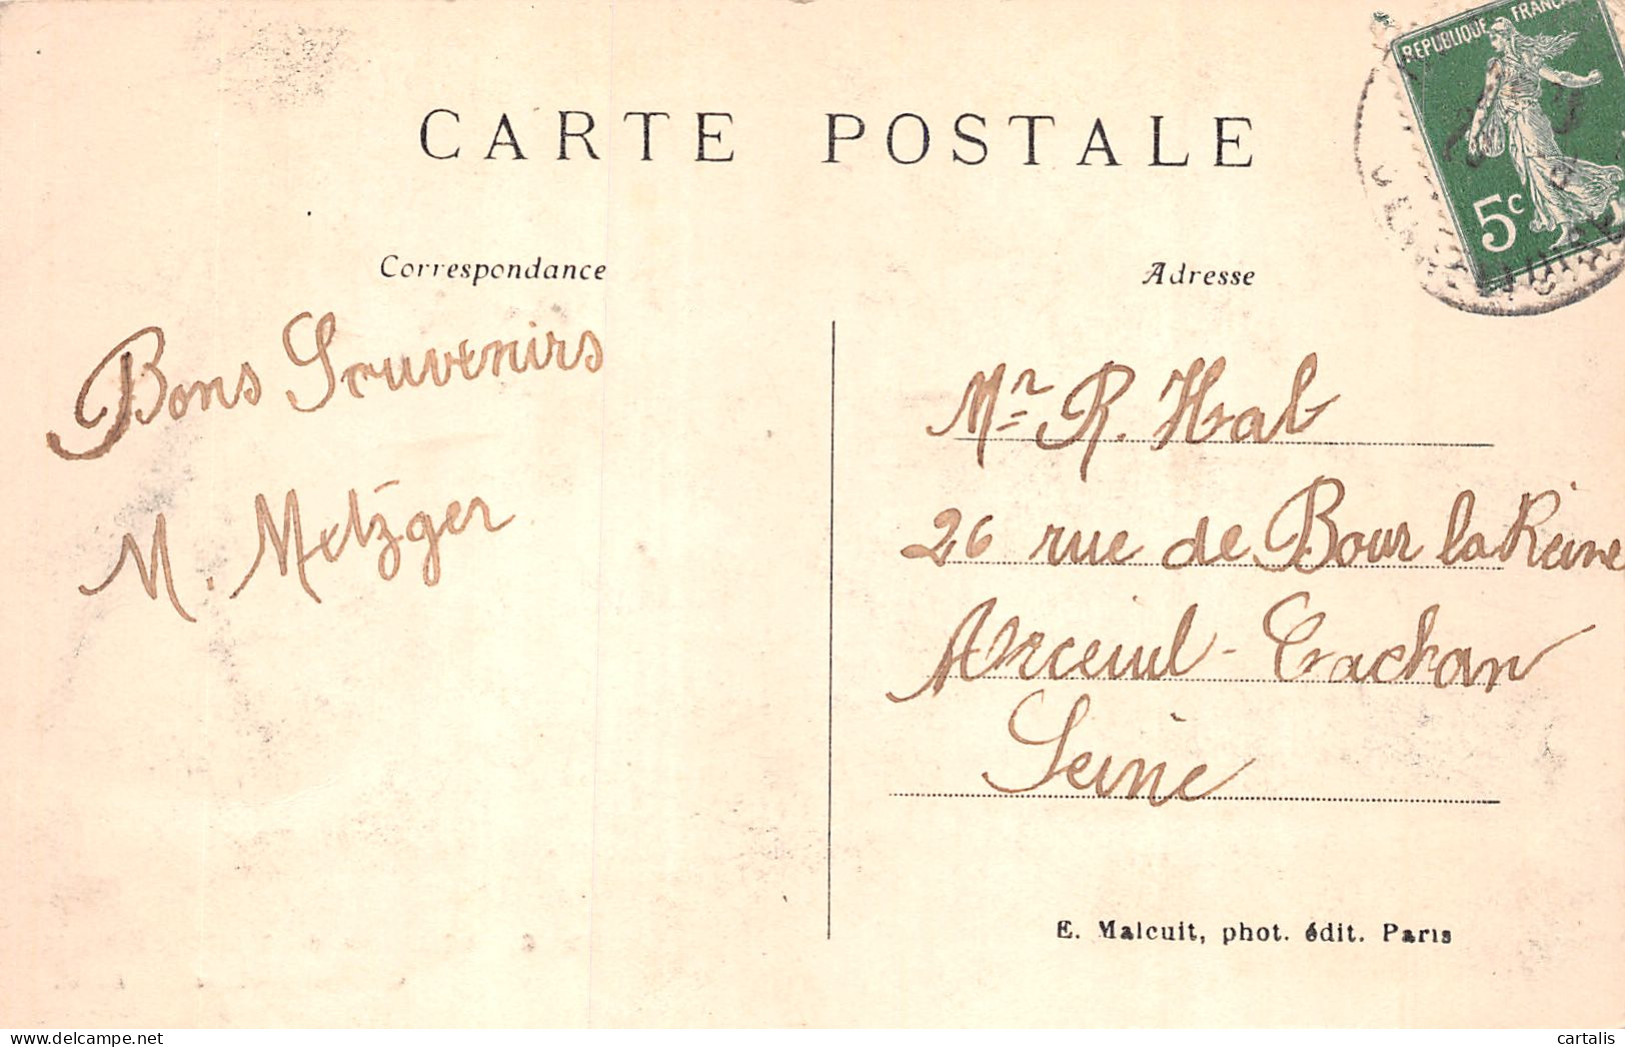 RÉPUBLIQUE FRANÇAISE
5c
CARTE POSTALE
Correspondance
Adresse
Bons Souvenirs
M. Metzger
Mr R. Hal
26 rue de Bour la Reine
Arceuil - Cachan
Seine
E. Malcuit, phot. édit. Paris
delcampe.net
cartalis